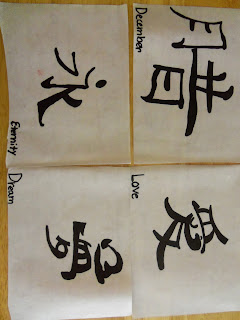 腊
December
愛
Love
永
Eternity
夢
Dream